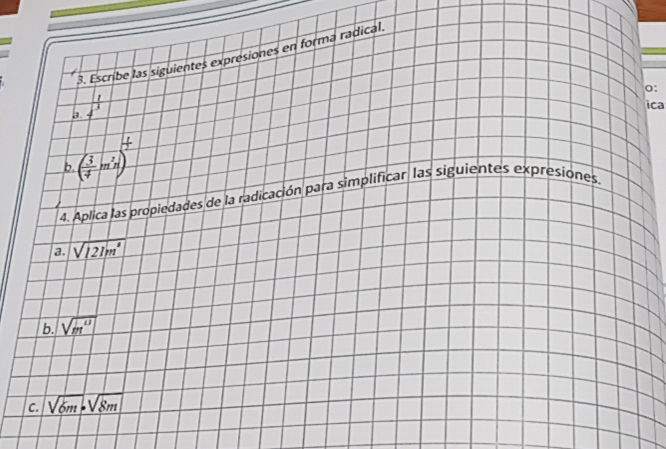 3. Escribe las siguientes expresiones en forma radical.
a. 4^(1/3)
b. (3/4 m²n)
4. Aplica las propiedades de la radicación para simplificar las siguientes expresiones.
a. √121m
b. √m¹³
c. √6m · √8m
o:
ica